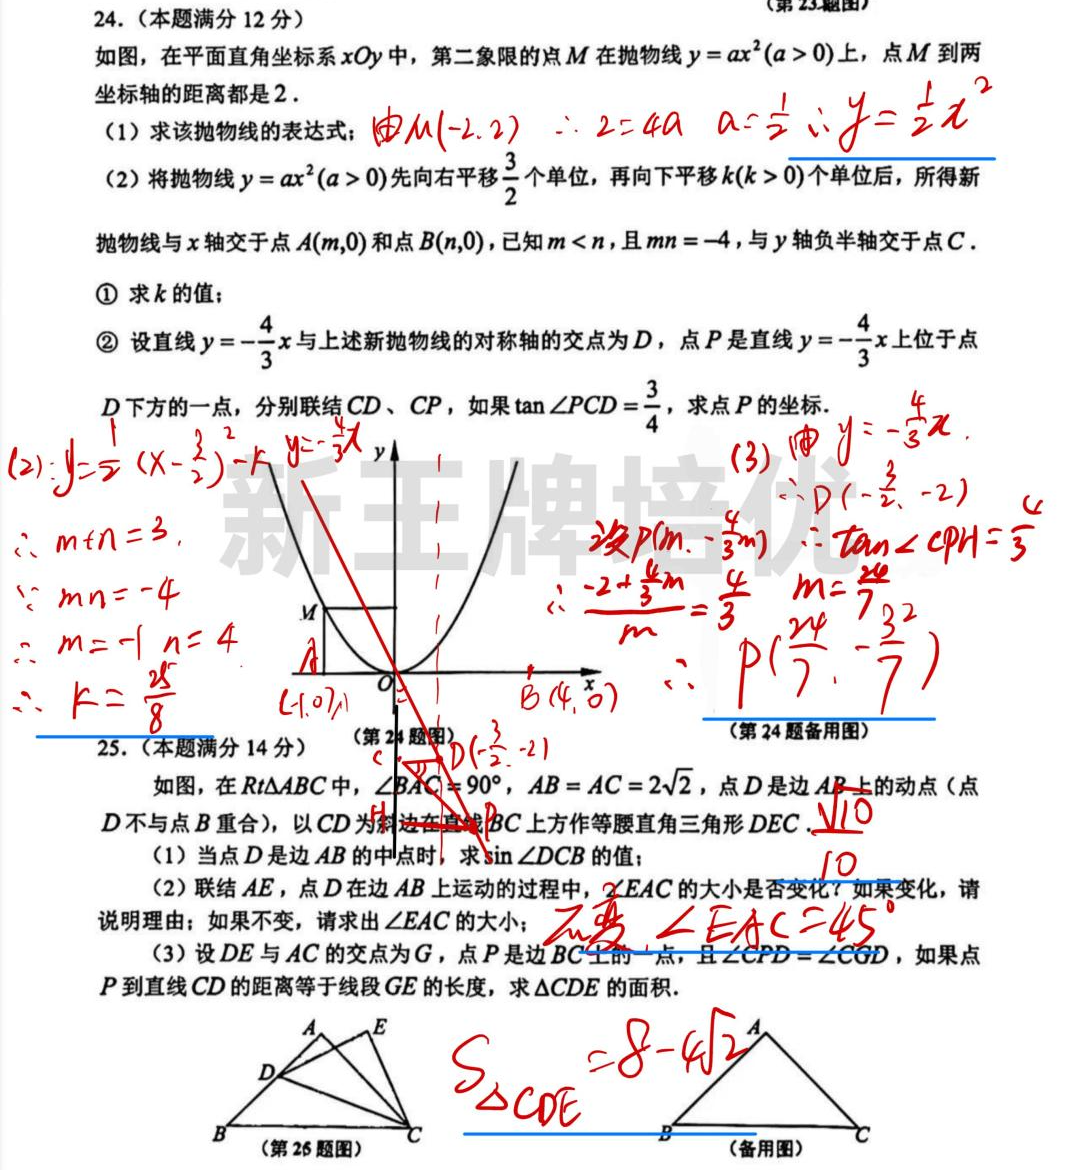 (第23题图)
24.（本题满分 12 分）
如图，在平面直角坐标系 xOy 中，第二象限的点 M 在抛物线 y = ax²(a > 0)上，点 M 到两
坐标轴的距离都是 2．
（1）求该抛物线的表达式； 由M(-2.2) ∴ 2=4a a=1/2 ∴ y=1/2x²
（2）将抛物线 y = ax²(a > 0)先向右平移 3/2 个单位，再向下平移 k(k > 0)个单位后，所得新
抛物线与 x 轴交于点 A(m,0) 和点 B(n,0)，已知 m < n，且 mn = −4，与 y 轴负半轴交于点 C．
① 求 k 的值；
② 设直线 y = −4/3x 与上述新抛物线的对称轴的交点为 D，点 P 是直线 y = −4/3x 上位于点
D 下方的一点，分别联结 CD、CP，如果 tan∠PCD = 3/4，求点 P 的坐标．
(2):y=1/2(x-3/2)²-k
∴ m+n=3,
∵ mn=-4
∴ m=-1 n=4
∴ k=25/8
y=-4/3x
y
M
A
O
x
(-1,0)
B(4,0)
(3) 由 y=-4/3x.
∴D(-3/2,-2)
设P(m.-4/3m) ∴ tan∠CPH=4/3
∴ (-2+4/3m)/m=4/3 m=24/7
∴ P(24/7,-32/7)
（第 24 题图）
（第 24 题备用图）
C
D(-3/2,-2)
H
P
25.（本题满分 14 分）
如图，在 Rt△ABC 中，∠BAC = 90°，AB = AC = 2√2，点 D 是边 AB 上的动点（点
D 不与点 B 重合），以 CD 为斜边在直线 BC 上方作等腰直角三角形 DEC．
（1）当点 D 是边 AB 的中点时，求 sin∠DCB 的值； √10/10
（2）联结 AE，点 D 在边 AB 上运动的过程中，∠EAC 的大小是否变化？如果变化，请
说明理由；如果不变，请求出 ∠EAC 的大小； 不变 ∠EAC=45°
（3）设 DE 与 AC 的交点为 G，点 P 是边 BC 上的一点，且 ∠CPD = ∠CGD，如果点
P 到直线 CD 的距离等于线段 GE 的长度，求 △CDE 的面积．
S△CDE=8-4√2
A
E
D
B
C
（第 26 题图）
A
B
C
（备用图）
新王牌培优